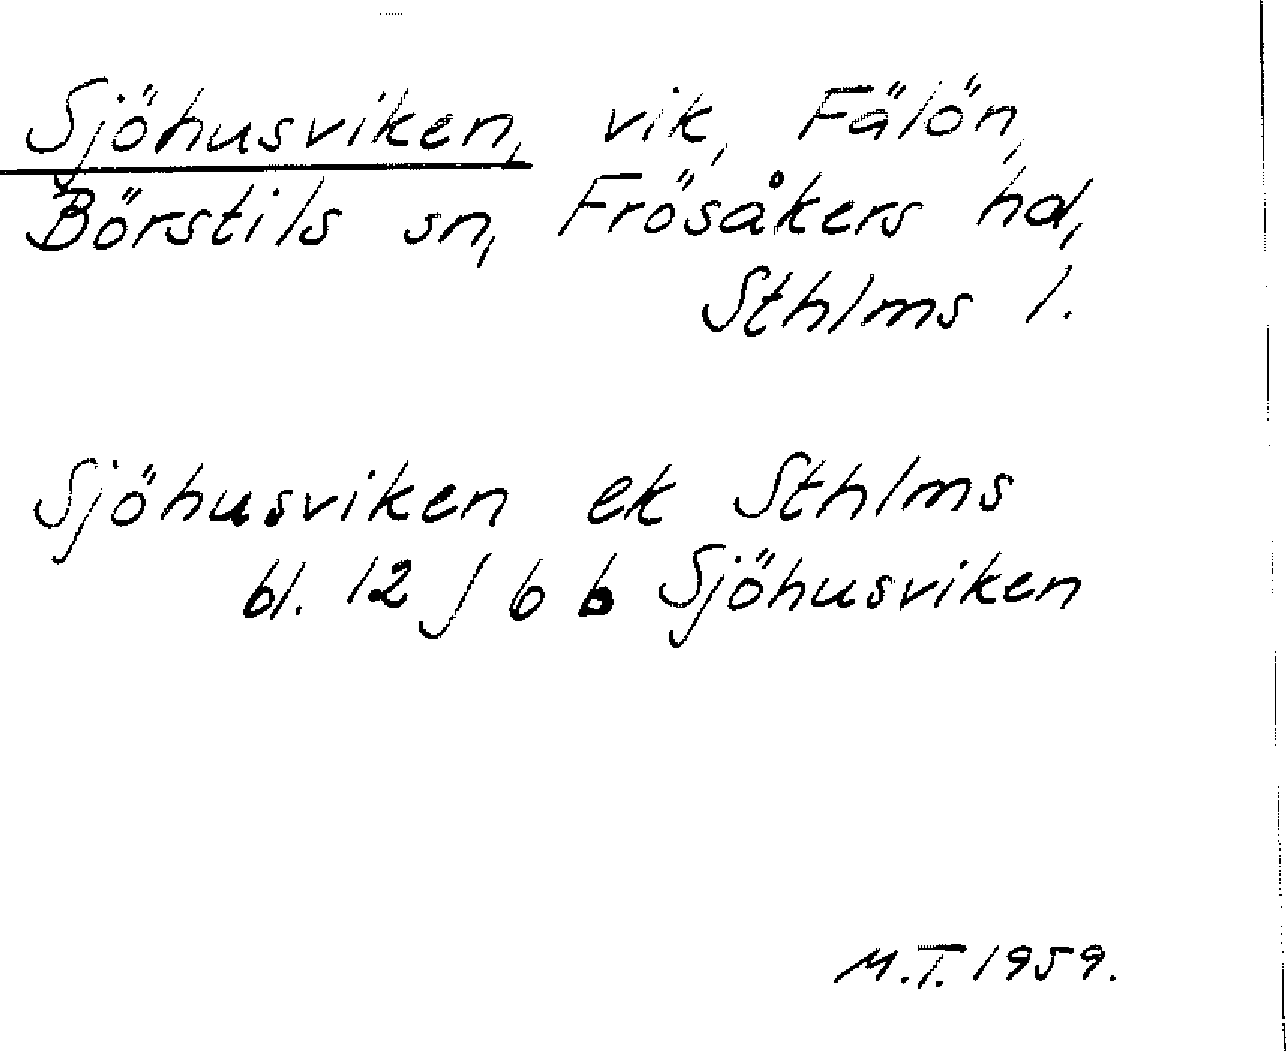 Sjöhusviken, vik, Fälön,
Börstils sn, Frösåkers hd,
Sthlms l.
Sjöhusviken ek Sthlms
bl. 12 J 6 b Sjöhusviken
M.T. 1959.